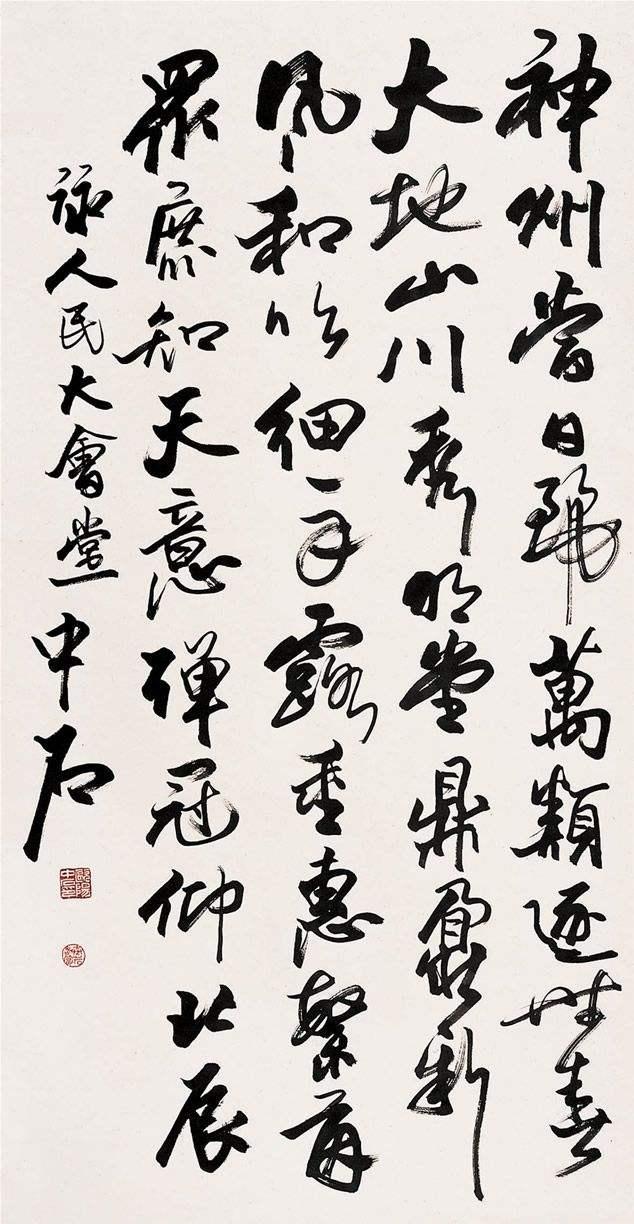 神州當日麗萬類遂性春
大地山川秀明堂鼎鼐新
風和吹細草露垂惠繁
眾庶知天意彈冠仰北辰
詠人民大會堂 中石